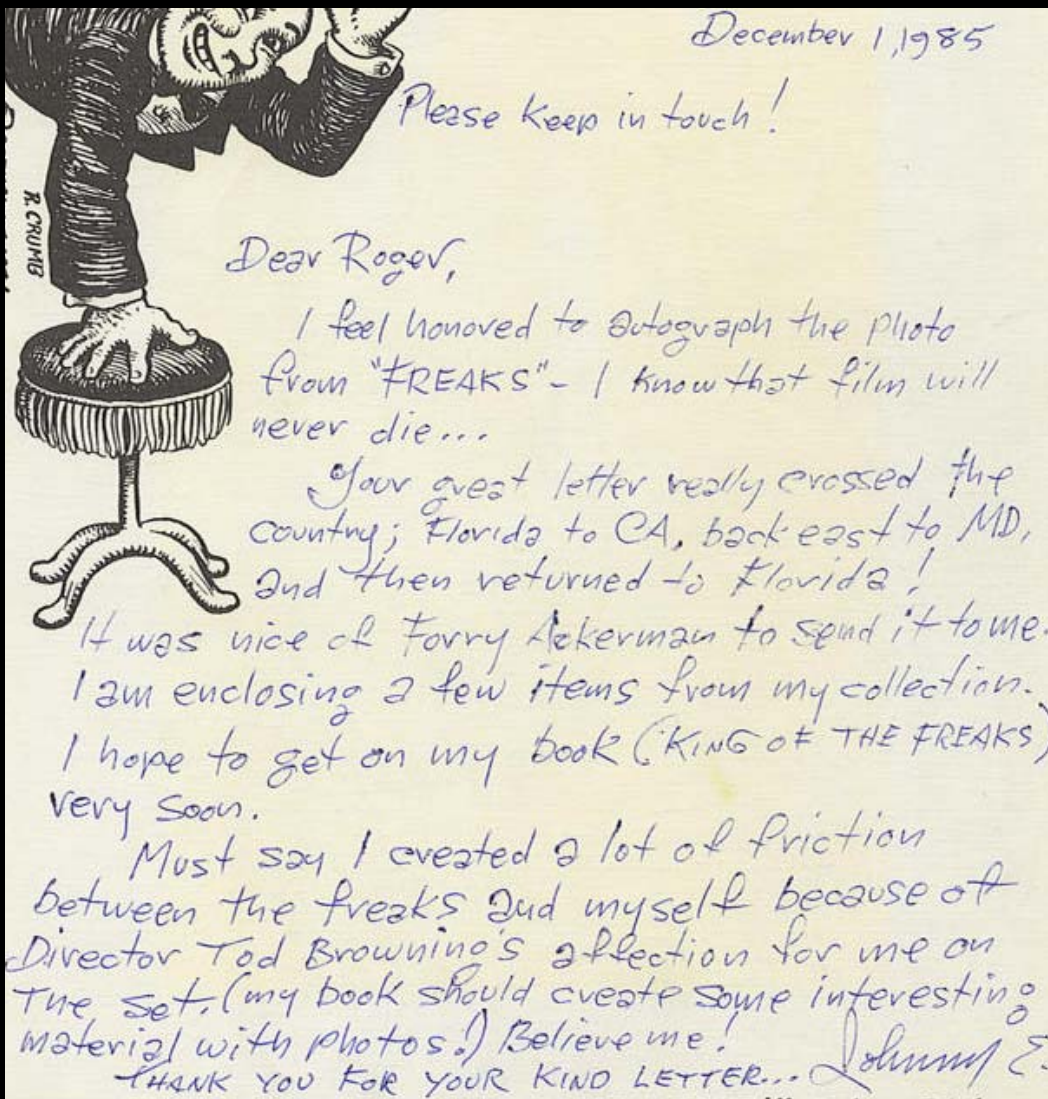 December 1, 1985
Please Keep in touch!
R. CRUMB
Dear Roger,
I feel honored to autograph the photo
from "FREAKS" - I know that film will
never die...
Your great letter really crossed the
country; Florida to CA, back east to MD,
and then returned to Florida!
It was nice of Forry Ackerman to send it to me.
I am enclosing a few items from my collection.
I hope to get on my book (KING OF THE FREAKS)
very soon.
Must say I created a lot of friction
between the freaks and myself because of
Director Tod Browning's affection for me on
The set. (my book should create some interesting
material with photos!) Believe me!
THANK YOU FOR YOUR KIND LETTER... Johnny E.